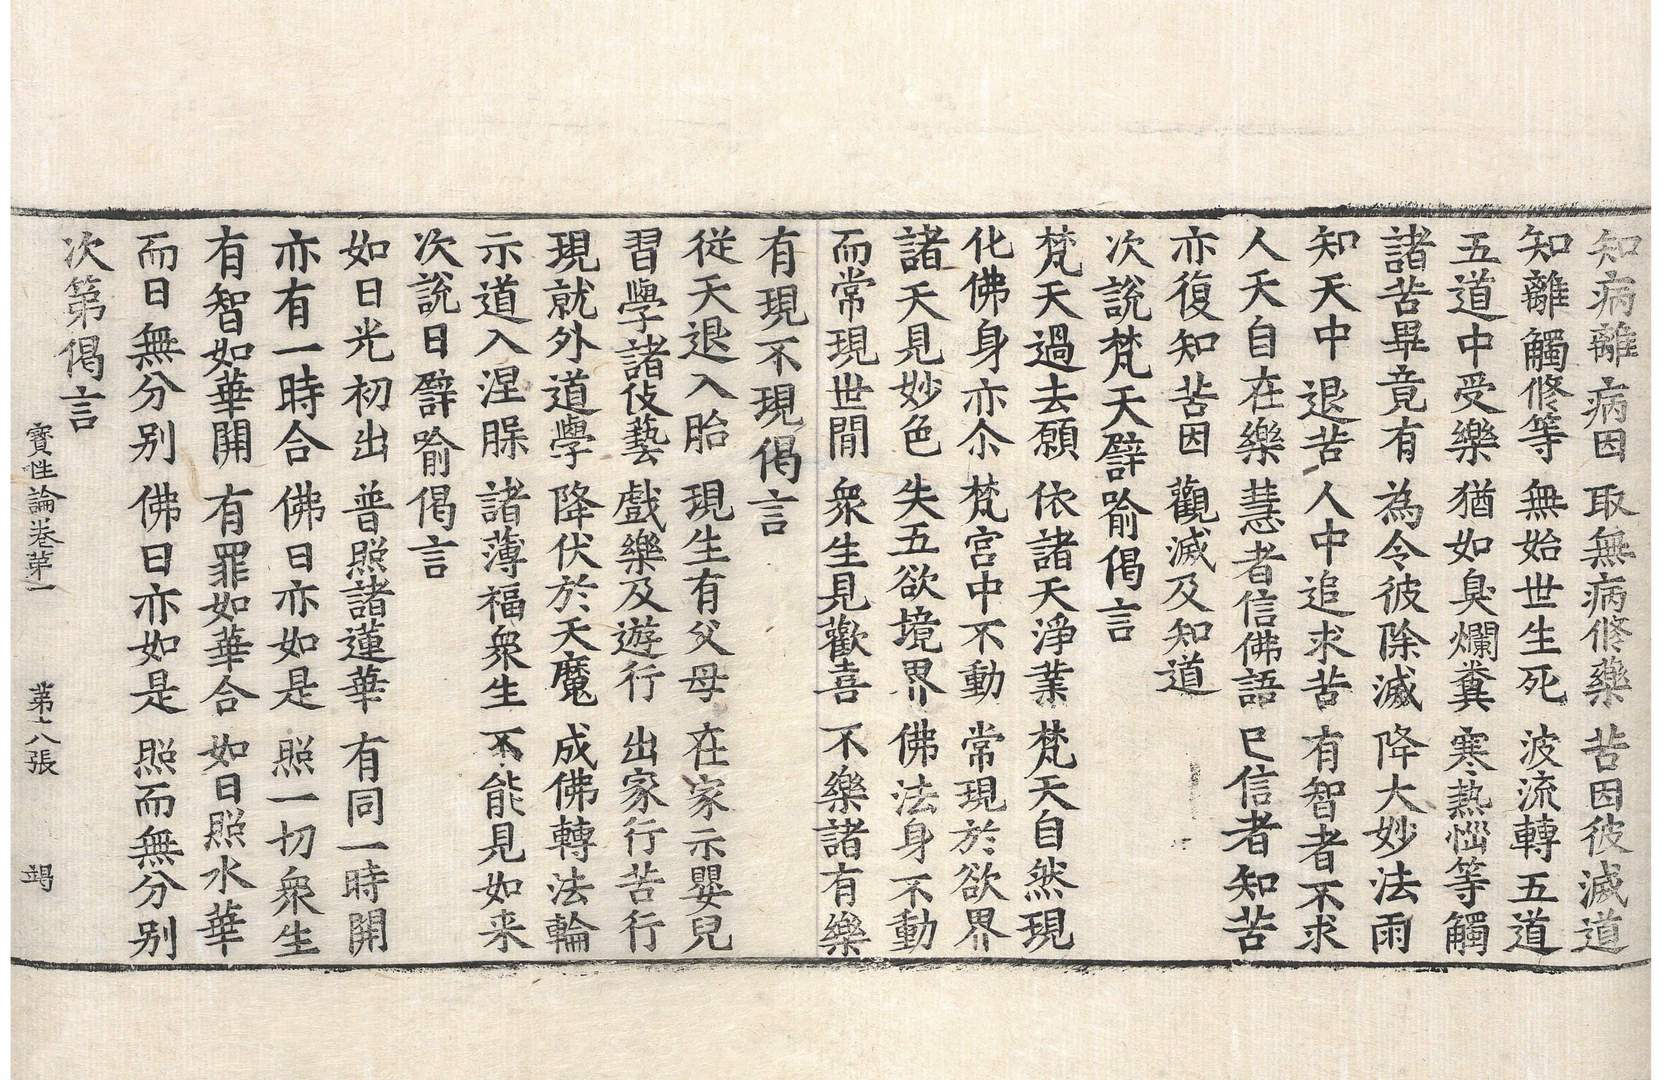 知病離病因　取無病修藥　苦因彼滅道
知離觸修等　無始世生死　波流轉五道
五道中受樂　猶如臭爛糞　寒熱惱等觸
諸苦畢竟有　為令彼除滅　降大妙法雨
知天中退苦　人中追求苦　有智者不求
人天自在樂　慧者信佛語　已信者知苦
亦復知苦因　觀滅及知道
次說梵天譬喻偈言
梵天過去願　依諸天淨業　梵天自然現
化佛身亦尒　梵宮中不動　常現於欲界
諸天見妙色　失五欲境界　佛法身不動
而常現世間　衆生見歡喜　不樂諸有樂
有現不現偈言
從天退入胎　現生有父母　在家示嬰兒
習學諸伎藝　戲樂及遊行　出家行苦行
現就外道學　降伏於天魔　成佛轉法輪
示道入涅槃　諸薄福衆生　不能見如来
次說日譬喻偈言
如日光初出　普照諸蓮華　有同一時開
亦有一時合　佛日亦如是　照一切衆生
有智如華開　有罪如華合　如日照水華
而日無分別　佛日亦如是　照而無分別
次第偈言
寶性論卷第一　第十八張　竭